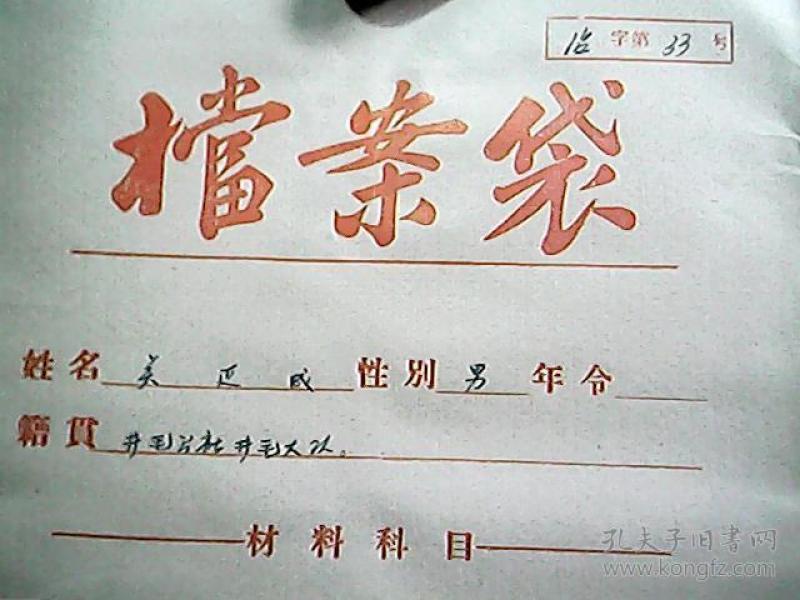 治字第33号
檔案袋
姓名 吴延成 性別 男 年令
籍貫 井毛公社井毛大队。
材料科目
孔夫子旧書网
www.kongfz.com